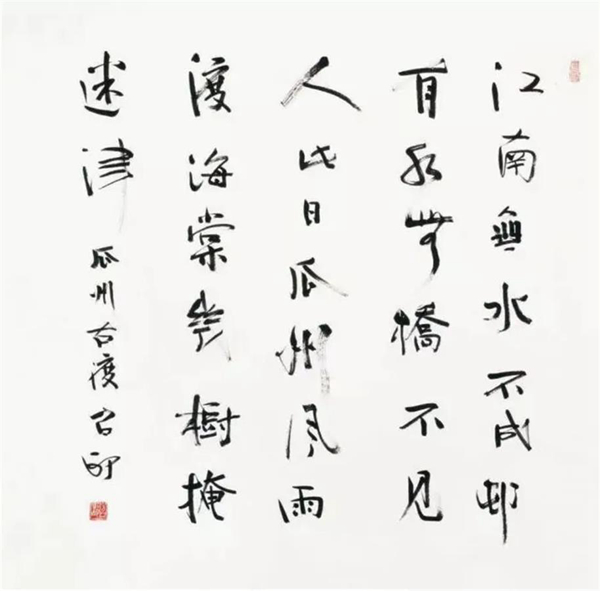 江南無水不成邨
有水無橋不見
人此日瓜州風雨
渡海棠花樹掩
迷津 瓜州古渡